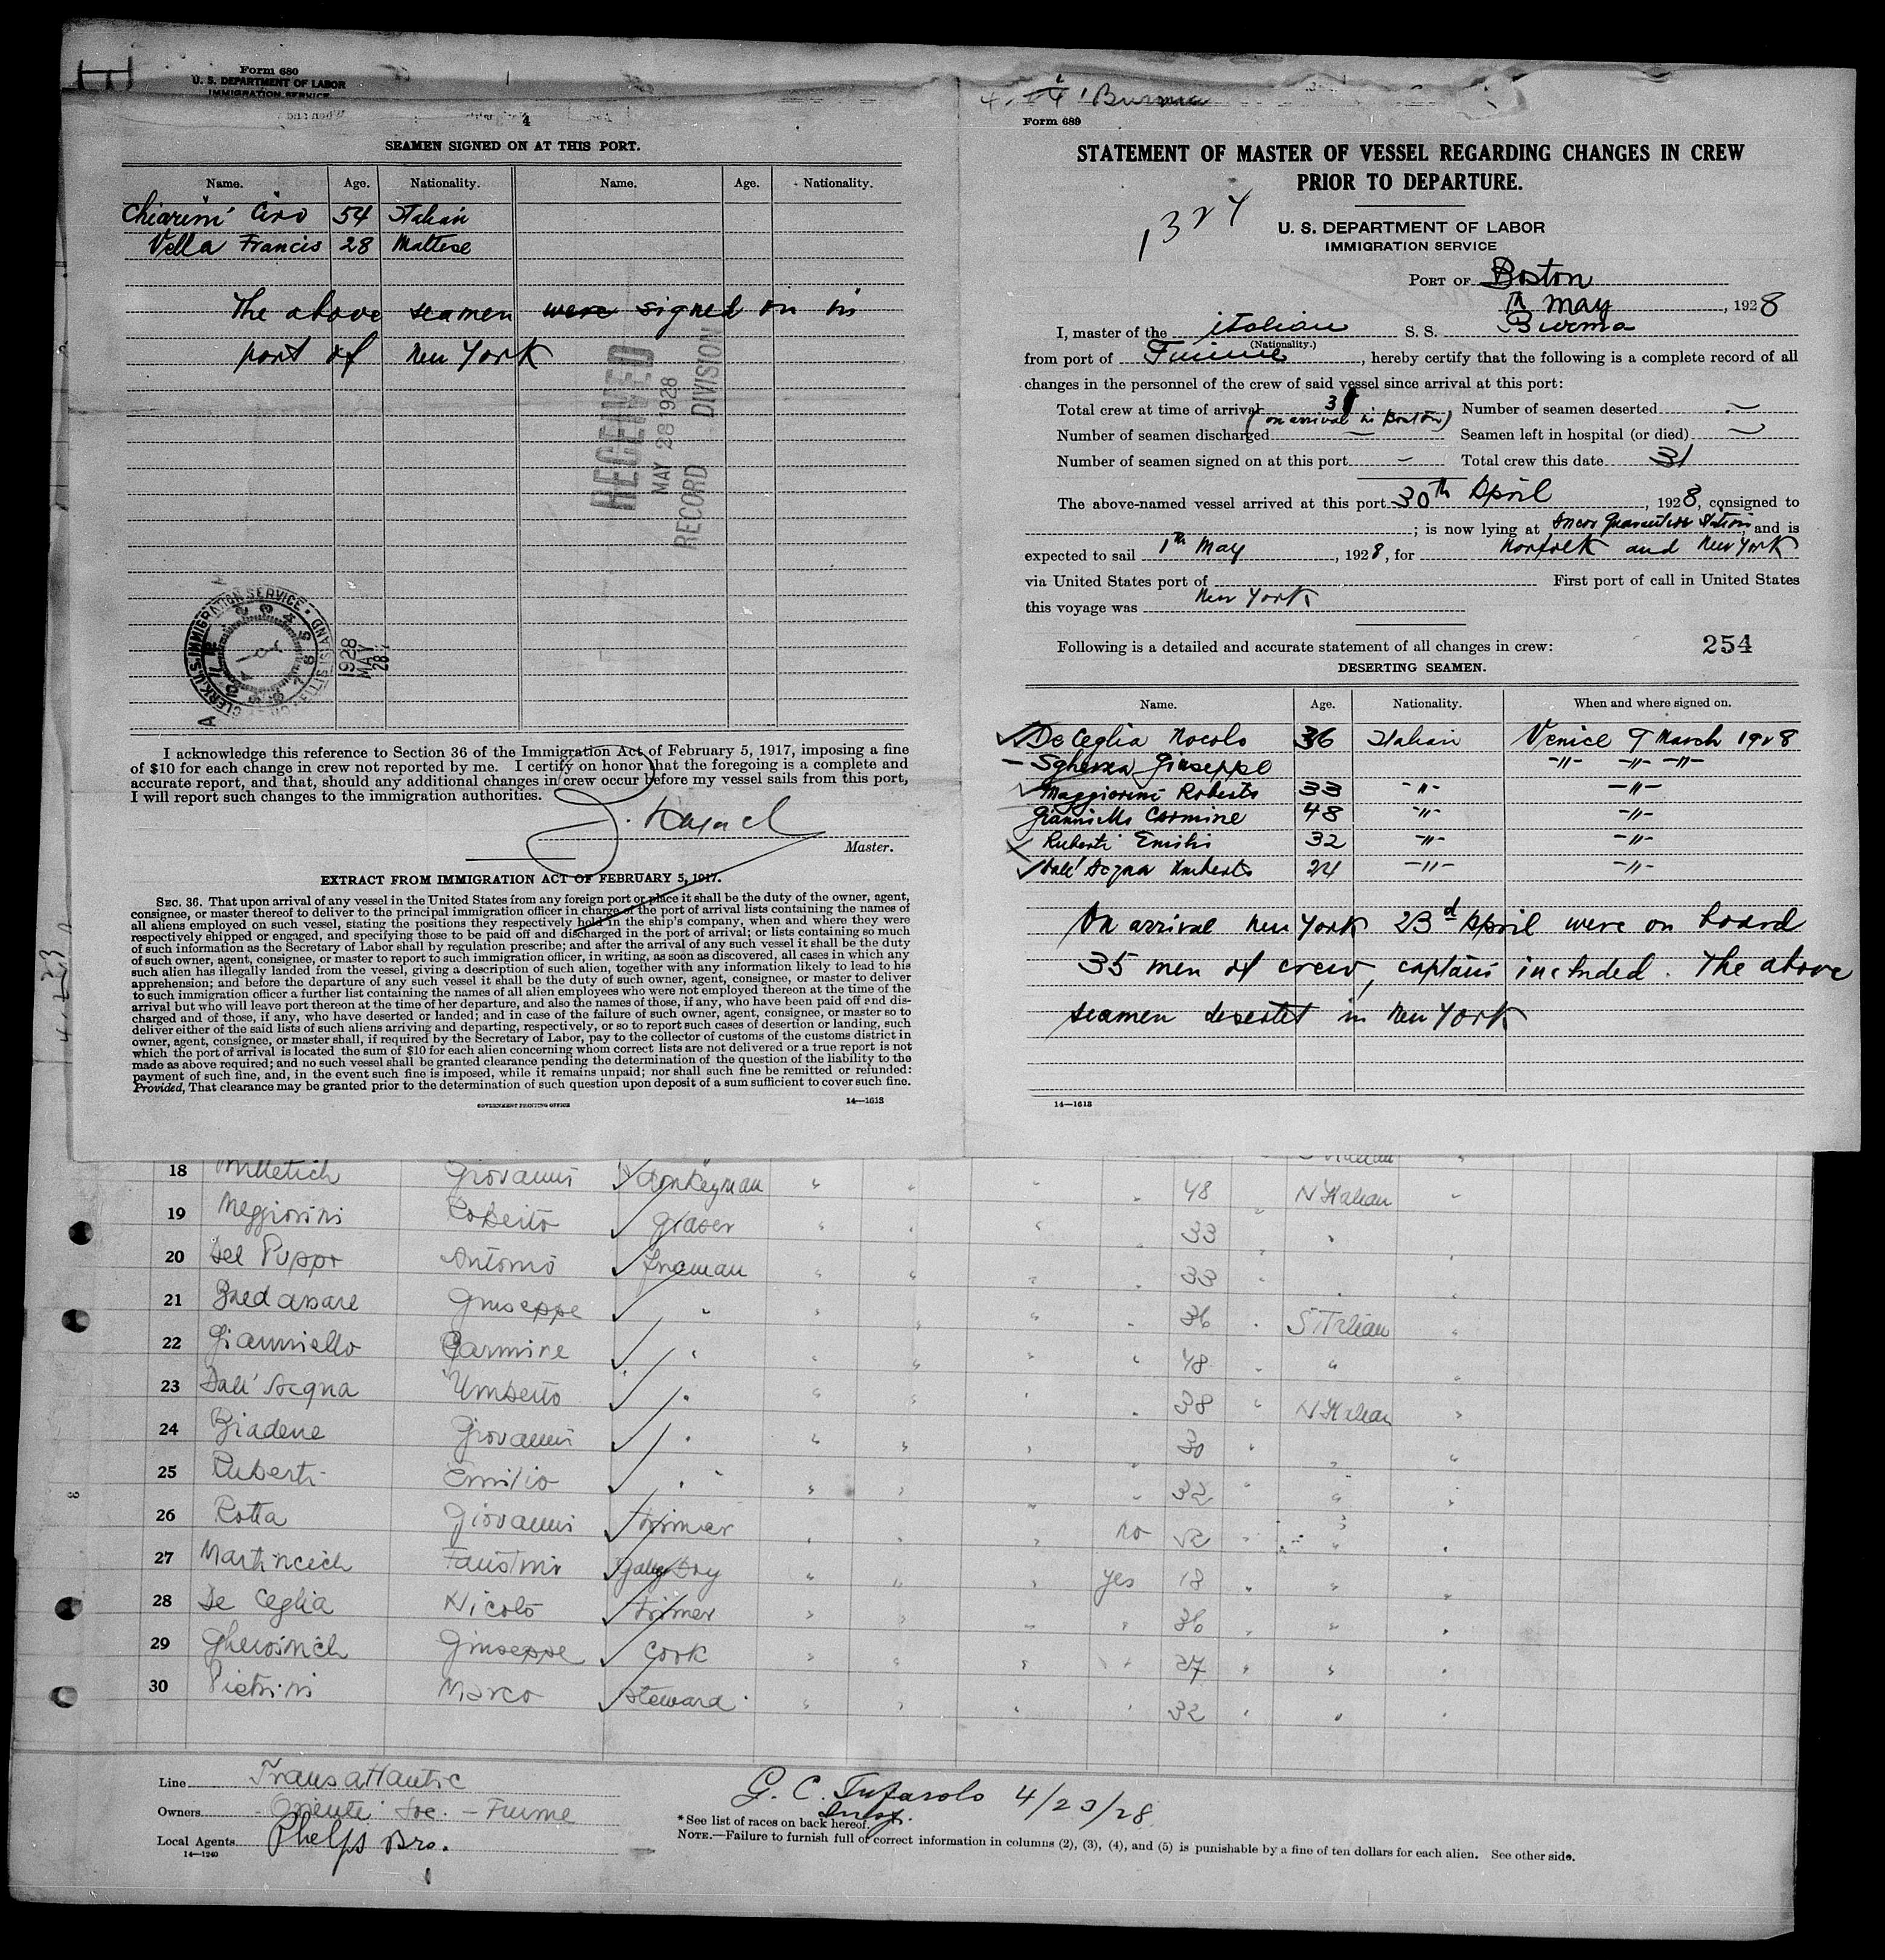 Form 680
U. S. DEPARTMENT OF LABOR
IMMIGRATION SERVICE
4
SEAMEN SIGNED ON AT THIS PORT.
Name. Age. Nationality. Name. Age. Nationality.
Chiarini Ciro 54 Italian
Vella Francis 28 Maltese
The above seamen were signed on in
port of New York
RECEIVED
MAY 28 1928
RECORD DIVISION
CLERK, U.S. IMMIGRATION SERVICE. ELLIS ISLAND
1928
MAY
28
I acknowledge this reference to Section 36 of the Immigration Act of February 5, 1917, imposing a fine
of $10 for each change in crew not reported by me. I certify on honor that the foregoing is a complete and
accurate report, and that, should any additional changes in crew occur before my vessel sails from this port,
I will report such changes to the immigration authorities.
Master.
EXTRACT FROM IMMIGRATION ACT OF FEBRUARY 5, 1917.
SEC. 36. That upon arrival of any vessel in the United States from any foreign port or place it shall be the duty of the owner, agent,
consignee, or master thereof to deliver to the principal immigration officer in charge of the port of arrival lists containing the names of
all aliens employed on such vessel, stating the positions they respectively hold in the ship's company, when and where they were
respectively shipped or engaged, and specifying those to be paid off and discharged in the port of arrival; or lists containing so much
of such information as the Secretary of Labor shall by regulation prescribe; and after the arrival of any such vessel it shall be the duty
of such owner, agent, consignee, or master to report to such immigration officer, in writing, as soon as discovered, all cases in which any
such alien has illegally landed from the vessel, giving a description of such alien, together with any information likely to lead to his
apprehension; and before the departure of any such vessel it shall be the duty of such owner, agent, consignee, or master to deliver
to such immigration officer a further list containing the names of all alien employees who were not employed thereon at the time of the
arrival but who will leave port thereon at the time of her departure, and also the names of those, if any, who have been paid off and dis-
charged and of those, if any, who have deserted or landed; and in case of the failure of such owner, agent, consignee, or master so to
deliver either of the said lists of such aliens arriving and departing, respectively, or so to report such cases of desertion or landing, such
owner, agent, consignee, or master shall, if required by the Secretary of Labor, pay to the collector of customs of the customs district in
which the port of arrival is located the sum of $10 for each alien concerning whom correct lists are not delivered or a true report is not
made as above required; and no such vessel shall be granted clearance pending the determination of the question of the liability to the
payment of such fine, and, in the event such fine is imposed, while it remains unpaid; nor shall such fine be remitted or refunded:
Provided, That clearance may be granted prior to the determination of such question upon deposit of a sum sufficient to cover such fine.
GOVERNMENT PRINTING OFFICE 14—1613
Burma
Form 689
STATEMENT OF MASTER OF VESSEL REGARDING CHANGES IN CREW
PRIOR TO DEPARTURE.
1324
U. S. DEPARTMENT OF LABOR
IMMIGRATION SERVICE
PORT OF Boston
May, 1928
I, master of the italian S. S. Burma
(Nationality.)
from port of Fiume, hereby certify that the following is a complete record of all
changes in the personnel of the crew of said vessel since arrival at this port:
Total crew at time of arrival 31 Number of seamen deserted —
(on arrival in Boston)
Number of seamen discharged — Seamen left in hospital (or died) —
Number of seamen signed on at this port — Total crew this date 31
The above-named vessel arrived at this port 30th April, 1928, consigned to
; is now lying at Quarantine Station, and is
expected to sail 1th May, 1928, for Norfolk and New York
via United States port of First port of call in United States
this voyage was New York
Following is a detailed and accurate statement of all changes in crew: 254
DESERTING SEAMEN.
Name. Age. Nationality. When and where signed on.
De Ceglia Nocolo 36 Italian Venice 9 March 1928
Sgherza Giuseppe -"- -"- -"-
Maggiorini Roberto 33 -"- -"-
Gianniello Carmine 48 -"- -"-
Ruberti Emilio 32 -"- -"-
Dall' Acqua Umberto 24 -"- -"-
On arrival New York 23d April were on board
35 men of crew, captain included. The above
seamen desertet in New York
14—1613
18 Milletich Giovanni Donkeyman " " " " 48 N Italian "
19 Meggiorini Roberto Greaser " " " " 33 " "
20 Del Puppo Antonio Fireman " " " " 33 " "
21 Baldassare Giuseppe " " " " " 36 " S Italian "
22 Gianniello Carmine " " " " " 48 " " "
23 Dall' Acqua Umberto " " " " " 38 " N Italian "
24 Biadene Giovanni " " " " " 30 " " "
25 Ruberti Emilio " " " " " 32 " " "
26 Rotta Giovanni Trimer " " " no 52 " " "
27 Martincich Faustino Galley Boy " " " yes 18 " " "
28 De Ceglia Nicolò Trimer " " " " 36 " " "
29 Ghersinich Giuseppe Cook " " " " 27 " " "
30 Pietrini Marco Steward " " " " 32 " " "
Line Transatlantic
Owners Oriente Soc. - Fiume
Local Agents Phelps Bro.
14—1240
G. C. Tufarolo 4/23/28
Insp.
*See list of races on back hereof.
NOTE.—Failure to furnish full or correct information in columns (2), (3), (4), and (5) is punishable by a fine of ten dollars for each alien. See other side.